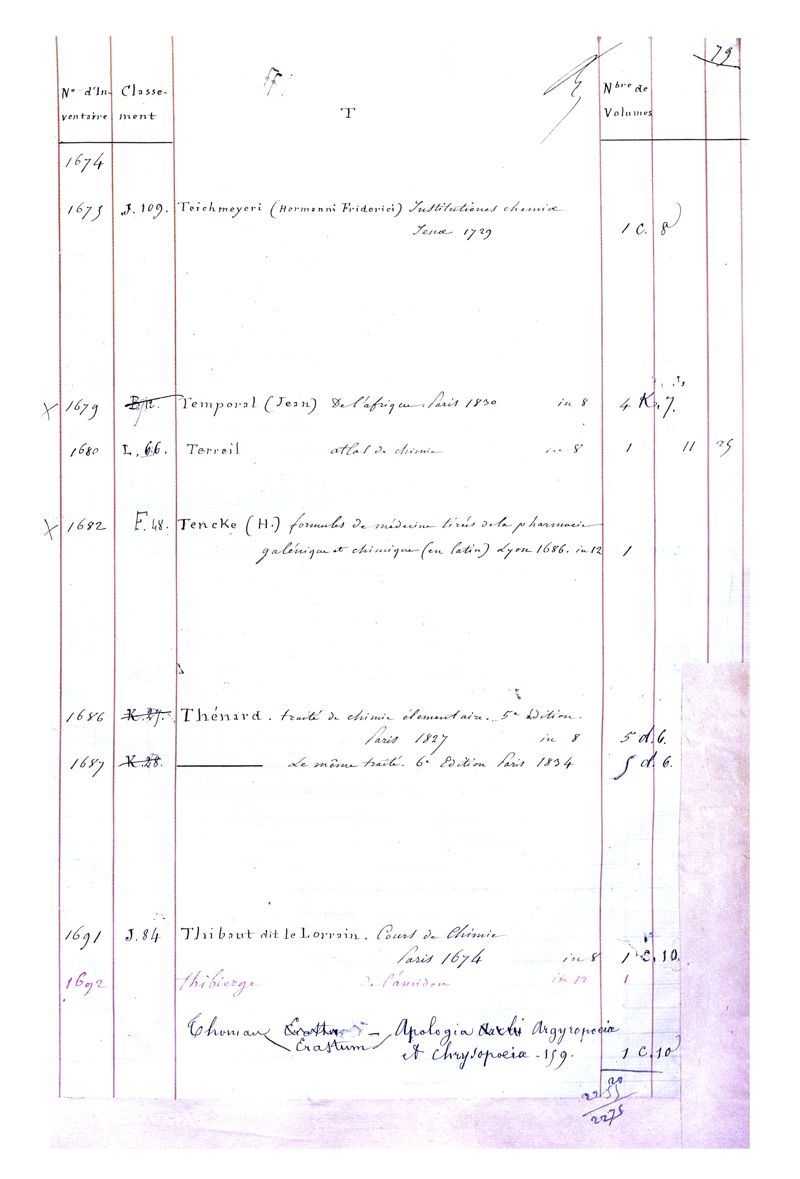 79
ff.
N° d'In- Classe- Nbre de
ventaire ment T Volumes
1674
1675 J. 109. Teichmeyeri (Hermanni Friderici) Institutiones chemiæ
Jenæ 1729 1 C. 8
X 1679 B/12. Temporal (Jean) De l'afrique. Paris 1830 in 8 4 K. 7.
1680 L. 66. Terreil atlas de chimie in 8 1 11 25
X 1682 F. 48. Tencke (H.) formules de médecine tirés de la pharmacie
galénique et chimique (en latin) Lyon 1686. in 12 1
1686 K. 27. Thénard. traité de chimie élementaire. 5e édition.
Paris 1827 in 8 5 d. 6.
1687 K. 28. Le même traité. 6e Edition Paris 1834 5 d. 6.
1691 J. 84 Thibaut dit le Lorrain. Cours de Chimie
Paris 1674 in 8 1 C. 10.
1692 thibierge de l'amidon in 12 1
Thomam Erastum — Apologia Argyropoeiæ
et Chrysopoeiæ - 159. 1 C. 10
20
2255
2275